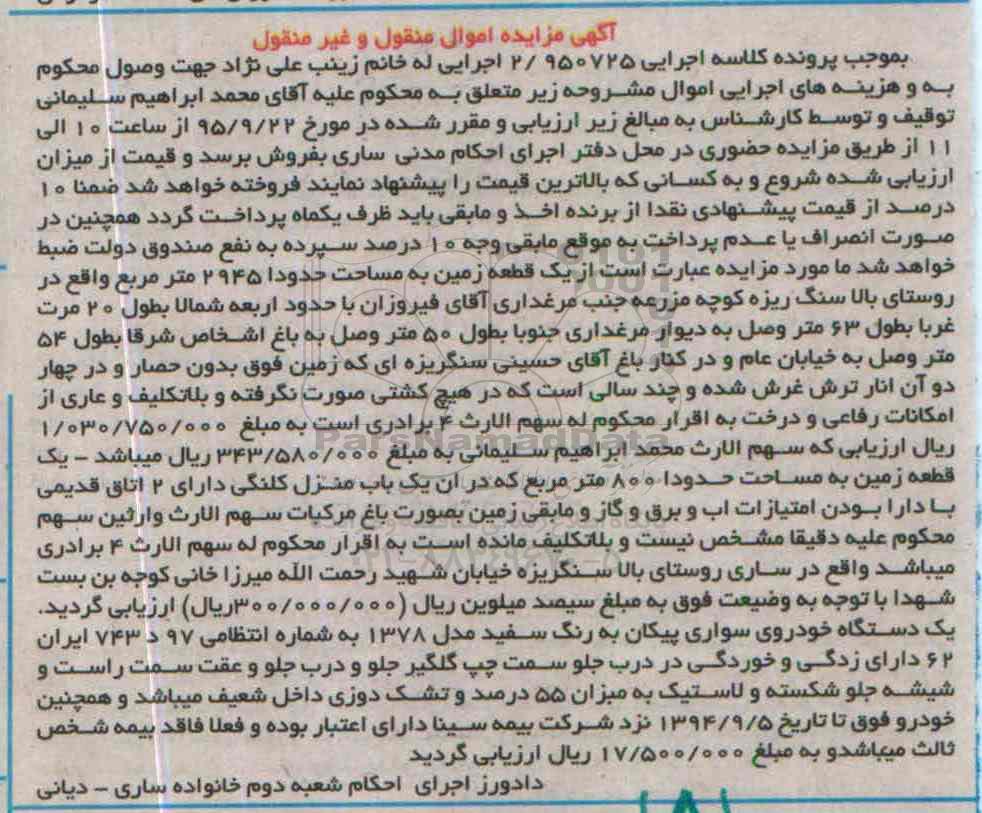 آگهی مزایده اموال منقول و غیر منقول
بموجب پرونده کلاسه اجرایی ۹۵۰۷۲۵ /۲ اجرایی له خانم زینب علی نژاد جهت وصول محکوم
به و هزینه های اجرایی اموال مشروحه زیر متعلق به محکوم علیه آقای محمد ابراهیم سلیمانی
توقیف و توسط کارشناس به مبالغ زیر ارزیابی و مقرر شده در مورخ ۹۵/۹/۲۲ از ساعت ۱۰ الی
۱۱ از طریق مزایده حضوری در محل دفتر اجرای احکام مدنی ساری بفروش برسد و قیمت از میزان
ارزیابی شده شروع و به کسانی که بالاترین قیمت را پیشنهاد نمایند فروخته خواهد شد ضمنا ۱۰
درصد از قیمت پیشنهادی نقدا از برنده اخذ و مابقی باید ظرف یکماه پرداخت گردد همچنین در
صورت انصراف یا عدم پرداخت به موقع مابقی وجه ۱۰ درصد سپرده به نفع صندوق دولت ضبط
خواهد شد ما مورد مزایده عبارت است از یک قطعه زمین به مساحت حدودا ۲۹۴۵ متر مربع واقع در
روستای بالا سنگ ریزه کوچه مزرعه جنب مرغداری آقای فیروزان با حدود اربعه شمالا بطول ۲۰ مرت
غربا بطول ۶۳ متر وصل به دیوار مرغداری جنوبا بطول ۵۰ متر وصل به باغ اشخاص شرقا بطول ۵۴
متر وصل به خیابان عام و در کنار باغ آقای حسینی سنگریزه ای که زمین فوق بدون حصار و در چهار
دو آن انار ترش غرش شده و چند سالی است که در هیچ کشتی صورت نگرفته و بلاتکلیف و عاری از
امکانات رفاعی و درخت به اقرار محکوم له سهم الارث ۴ برادری است به مبلغ ۱/۰۳۰/۷۵۰/۰۰۰
ریال ارزیابی که سهم الارث محمد ابراهیم سلیمانی به مبلغ ۳۴۳/۵۸۰/۰۰۰ ریال میباشد - یک
قطعه زمین به مساحت حدودا ۸۰۰ متر مربع که در ان یک باب منزل کلنگی دارای ۲ اتاق قدیمی
با دارا بودن امتیازات اب و برق و گاز و مابقی زمین بصورت باغ مرکبات سهم الارث وارثین سهم
محکوم علیه دقیقا مشخص نیست و بلاتکلیف مانده است به اقرار محکوم له سهم الارث ۴ برادری
میباشد واقع در ساری روستای بالا سنگریزه خیابان شهید رحمت الله میرزا خانی کوچه بن بست
شهدا با توجه به وضیعت فوق به مبلغ سیصد میلوین ریال (۳۰۰/۰۰۰/۰۰۰ریال) ارزیابی گردید.
یک دستگاه خودروی سواری پیکان به رنگ سفید مدل ۱۳۷۸ به شماره انتظامی ۹۷ د ۷۴۳ ایران
۶۲ دارای زدگی و خوردگی در درب جلو سمت چپ گلگیر جلو و درب جلو و عقت سمت راست و
شیشه جلو شکسته و لاستیک به میزان ۵۵ درصد و تشک دوزی داخل شعیف میباشد و همچنین
خودرو فوق تا تاریخ ۱۳۹۴/۹/۵ نزد شرکت بیمه سینا دارای اعتبار بوده و فعلا فاقد بیمه شخص
ثالث میباشدو به مبلغ ۱۷/۵۰۰/۰۰۰ ریال ارزیابی گردید
دادورز اجرای احکام شعبه دوم خانواده ساری - دیانی
ParsNamadData